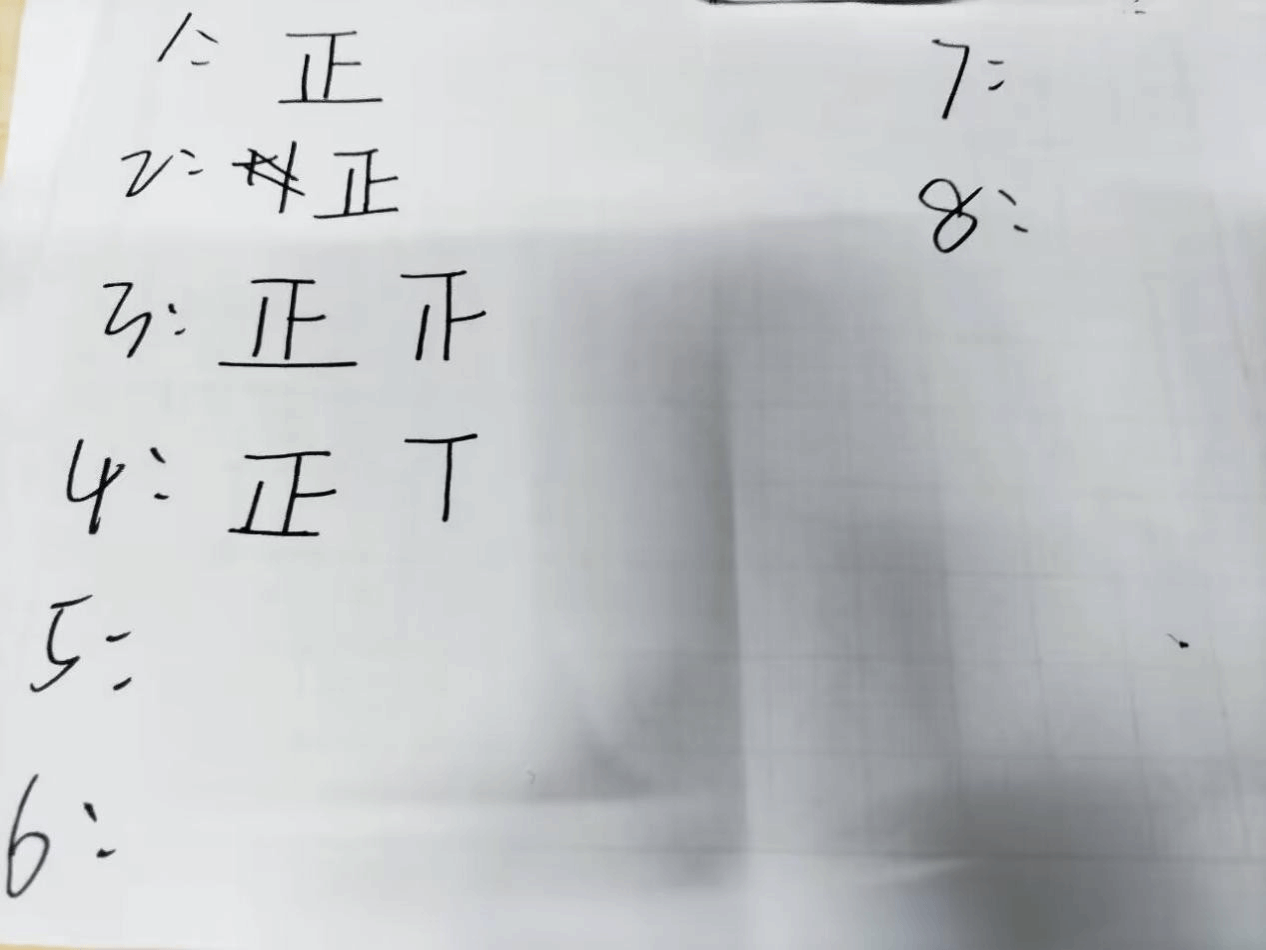 1: 正
2: 正
3: 正 正
4: 正 丅
5:
6:
7:
8: